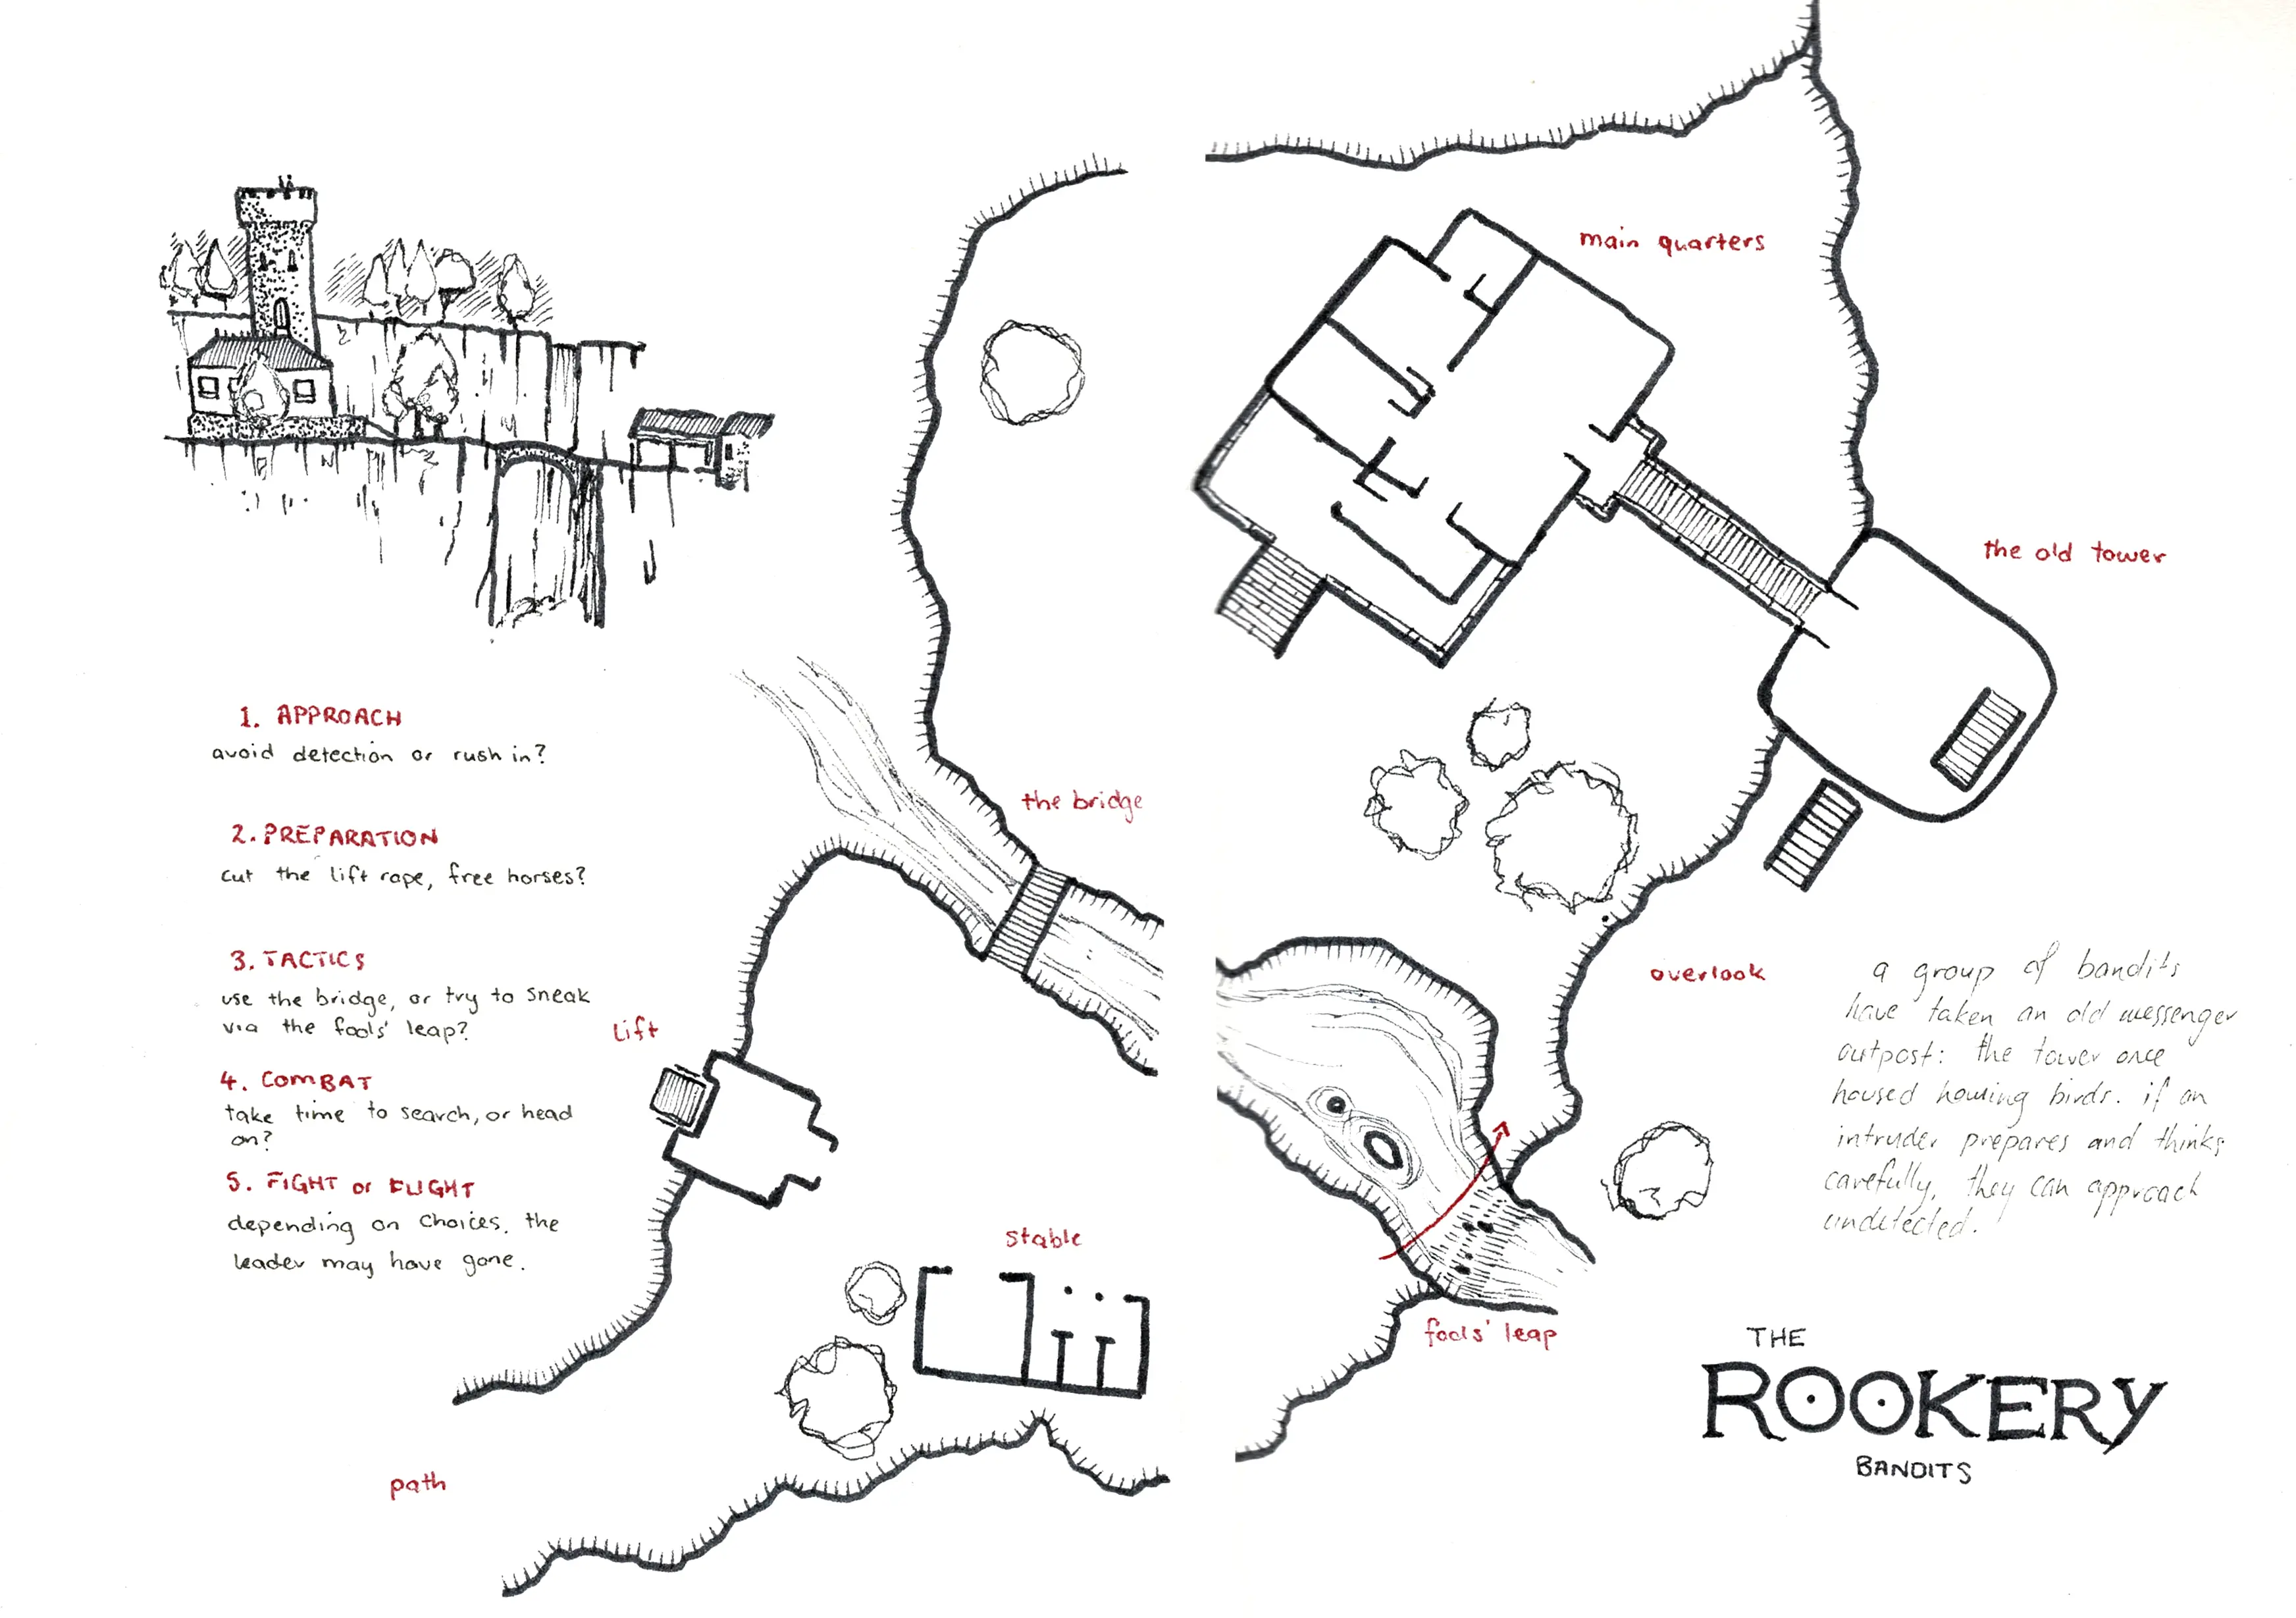 main quarters
the old tower
1. APPROACH
avoid detection or rush in?
the bridge
2. PREPARATION
cut the lift rope, free horses?
3. TACTICS
use the bridge, or try to sneak
via the fools' leap?
lift
overlook
4. COMBAT
take time to search, or head
on?
5. FIGHT or FLIGHT
depending on choices. the
leader may have gone.
stable
path
fools' leap
a group of bandits
have taken an old messenger
outpost: the tower once
housed homing birds. if an
intruder prepares and thinks
carefully, they can approach
undetected.
THE
ROOKERY
BANDITS